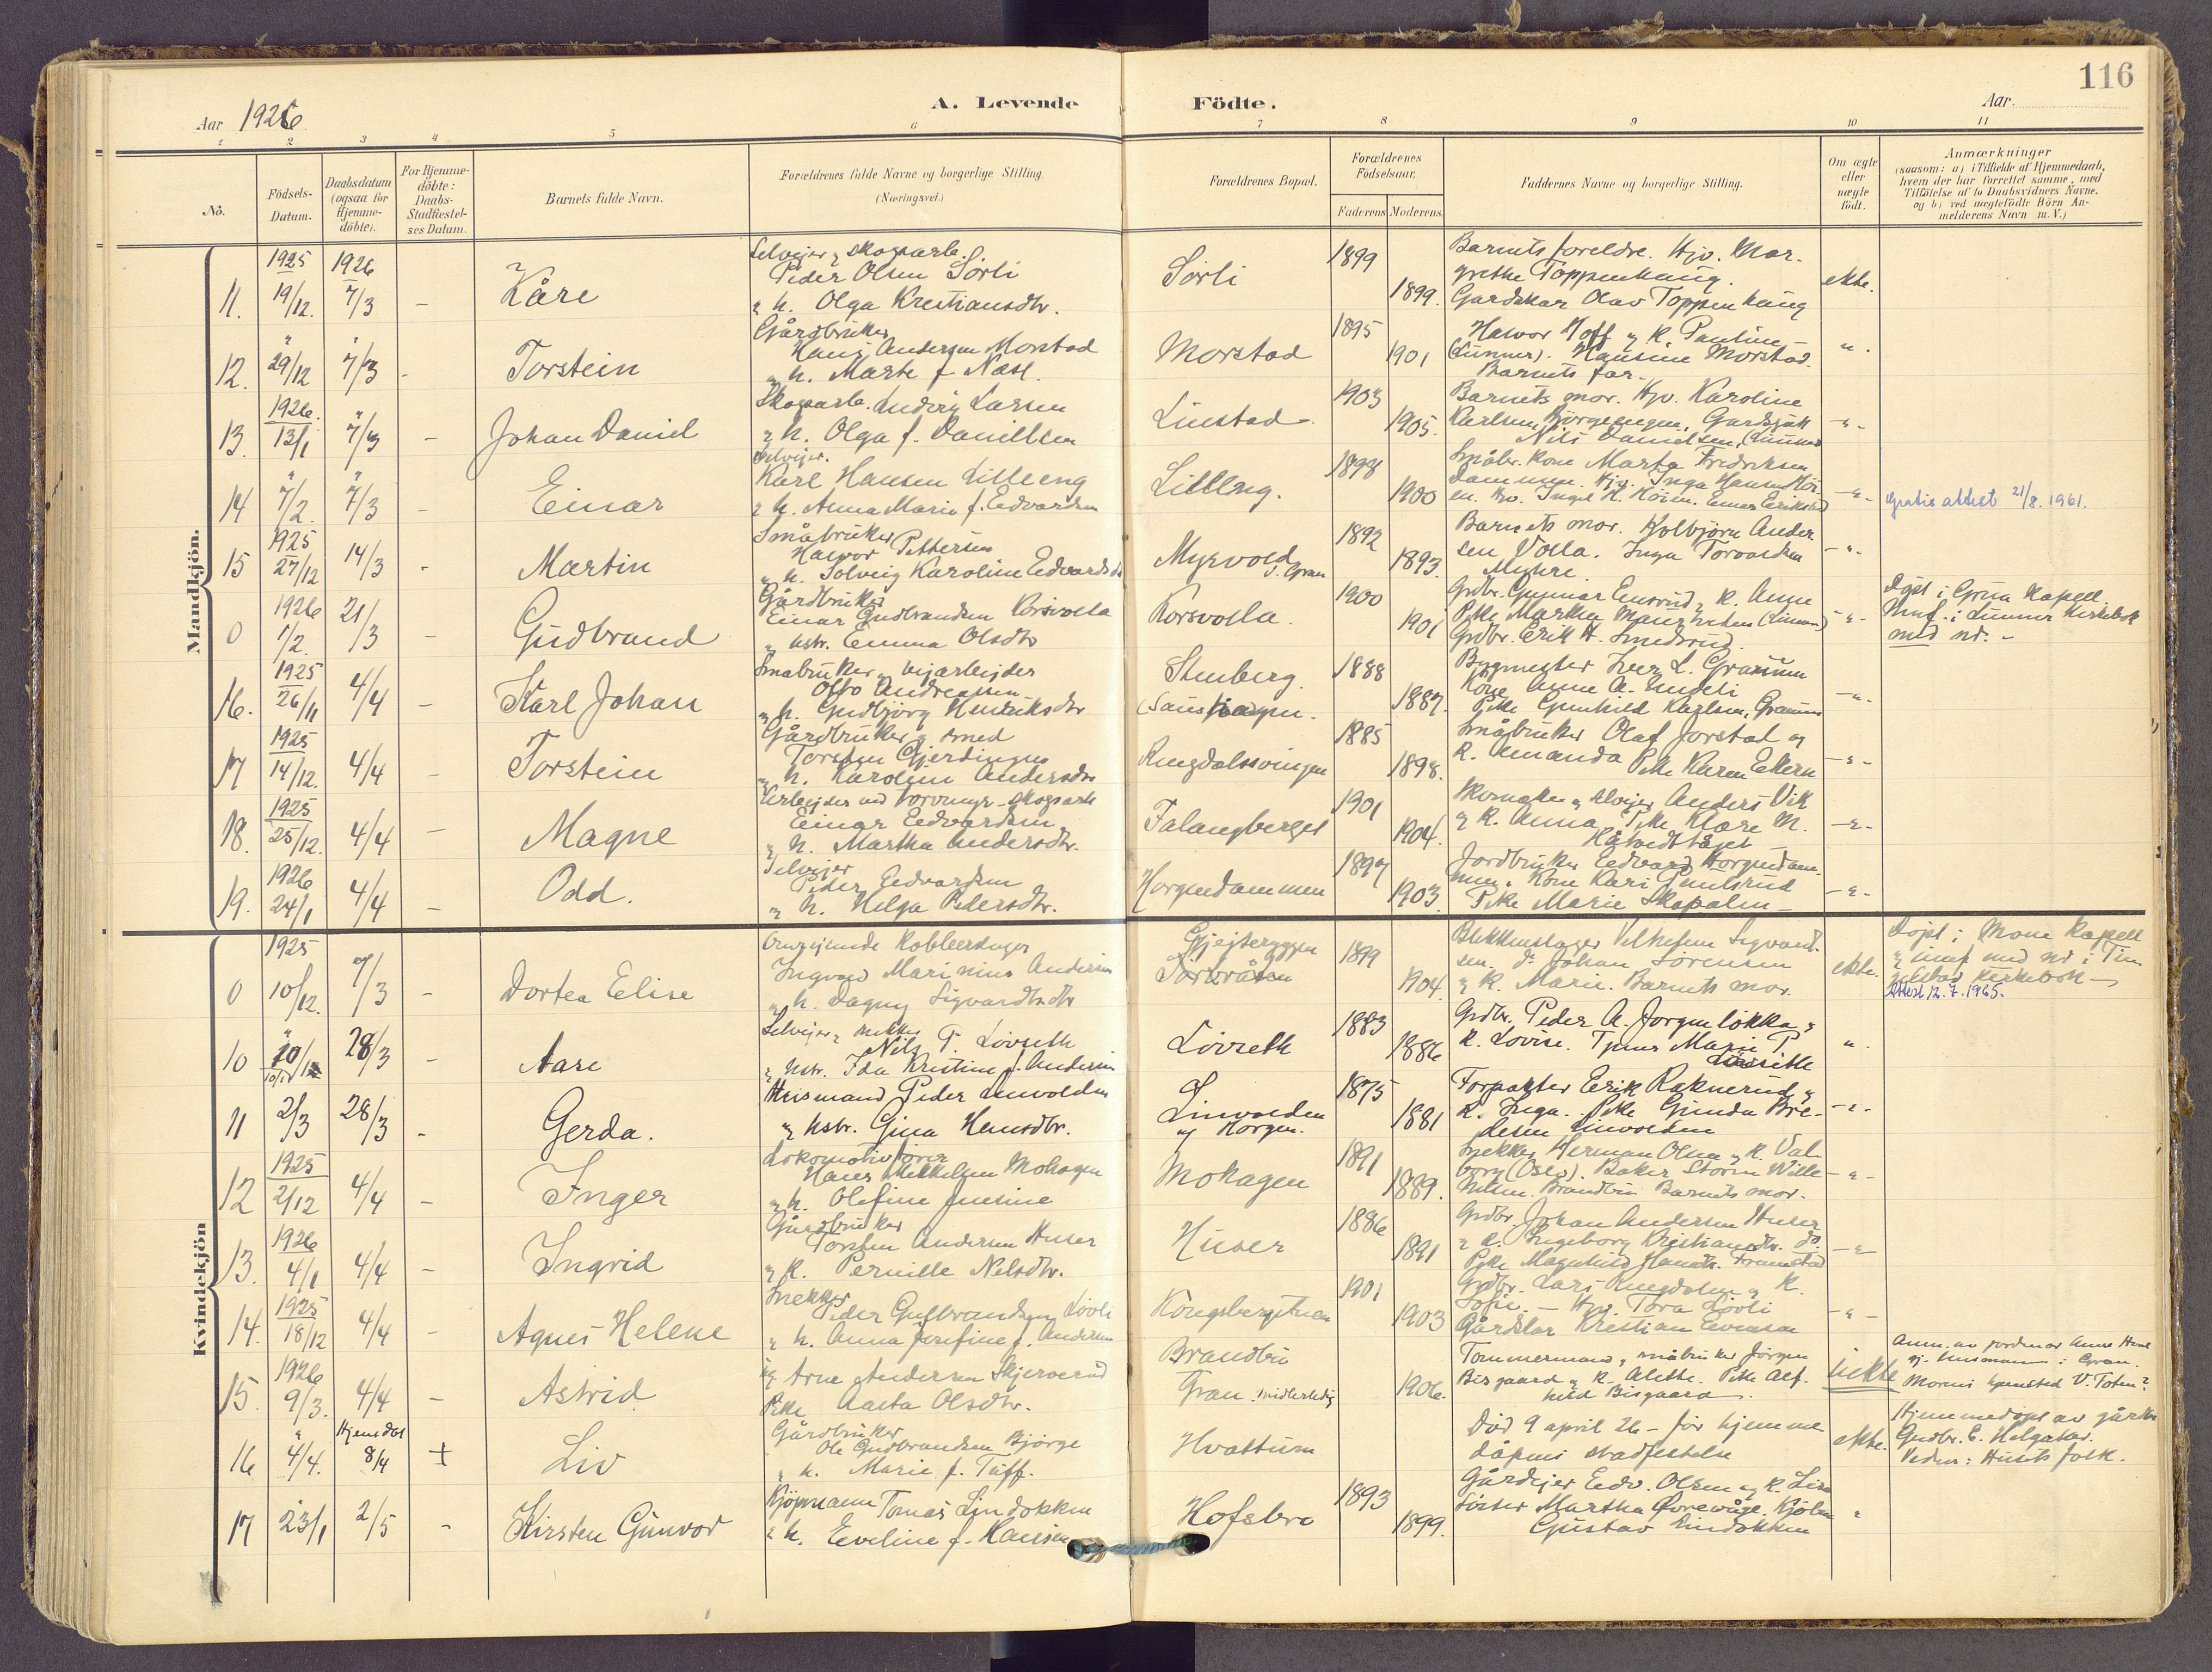 116
Aar 1926
A. Levende Födte.
Aar
1 2 3 4 5 6 7 8 9 10 11
No.
Födsels-Datum.
Daabsdatum (ogsaa for Hjemmedöbte).
For Hjemmedöbte: Daabs-Stadfæstelses Datum.
Barnets fulde Navn.
Forældrenes fulde Navne og borgerlige Stilling (Næringsvei.)
Forældrenes Bopæl.
Forældrenes Födselsaar.
Faderens Moderens.
Faddernes Navne og borgerlige Stilling.
Om ægte eller uægte födt.
Anmærkninger
(saasom: a) i Tilfælde af Hjemmedaab, hvem der har forrettet samme, med Tilföielse af to Daabsvidners Navne, og b) ved uægtefödte Börn Anmelderens Navn m. V.)
Mandkjön.
11. 1925 19/12. 1926 7/3 - Kåre
Selvejer & skogsarb. Peder Olsen Sörli
& h. Olga Kristiansdtr.
Sörli 1899 1899.
Barnets foreldre. Hjv. Margrethe Toppenhaug.
Gardskar Olav Toppenhaug
ekte.
12. " 29/12 " 7/3 - Torstein
Gårdbruker Hans Andersen Morstad
& h. Marte f. Næsl.
Morstad 1895 1901
Halvor Hoff & k. Pauline - (Lunner). Hansine Morstad.
Barnets far.
"
13. 1926. 13/1 " 7/3 - Johan Daniel
Skogsarb. Ludvig Larsen
& h. Olga f. Danielsen
Linstad 1903 1905.
Barnets mor. Hjv. Karoline
Karlsen Bjørgeengen. Gardsgutt
Nils Danielsen (Lunner)
- " -
14 " 7/2. " 7/3 - Einar
Selvejer. Karl Hansen Lilleeng
& h. Anna Marie f. Edvardsen
Lilleeng. 1898 1900
Småbr. kone Marta Fredriksen
Dammen. Hjv. Inga Hansen
- " -
Gratis attest 21/8. 1961.
15 1925 27/12 14/3 - Martin
Småbruker Halvor Pettersen
& h. Solveig Karoline Edvardsdtr
Myrvold S. Gran 1892 1893.
Barnets mor. Kolbjørn Andersen Volla. Inga Torvaldsen
Myhre.
- " -
0 1926 1/2. 21/3 - Gudbrand
Gårdbruker Einar Gudbrandsen Korsvolla
& hstr. Emma Olsdtr
Korsvolla. 1900 1901
Grdbr. Gunnar Ensrud & k. Anne
Pike Marthea (Lunner)
Grdbr. Erik H. Smedsrud.
- " -
Døpt i Grua Kapell
Innf. i Lunner Kirkebok
med nr. -
16. 1925 26/11 4/4 - Karl Johan
Småbruker & vejarbejder
Otto Andreassen
& h. Gudbjörg Henriksdtr
Stenberg. 1888 1887.
Bygmester Iver L. Granum
Kone Anne A.
Pike Gunhild Karlsen, Granum
- " -
17 1925 14/12. 4/4 - Torstein
Gårdbruker & smed
Torsten Gjerdingen
& h. Karoline Andersdtr
Ringdalssvingen 1885 1898.
Småbruker Olaf Jorstad og
k. Amanda Pike Karen Ekern
- " -
18. 1925 25/12. 4/4 - Magne
Arbejder ved torvmyr - skogsarb
Einar Edvardsen
& h. Martha Andersdtr.
Falangberget 1901 1904.
Skomaker & selvejer Anders Vik
& k. Anna Pike Klare M.
- " -
19. 1926 24/1 4/4 - Odd.
Selvejer Peder Edvardsen
& h. Helga Pedersdtr.
Horgendammen 1897 1903.
Jordbruker Edvard Horgendammen. Kone Kari Paulsrud
Pike Marie Skapalen -
- " -
Kvindekjön
0 1925 10/12. 7/3 - Dortea Elise
Omrejsende Kobberslager
Ingvald Marinius Andersen
& h. Dagny Sigvardtsdtr
Gjejteryggen 1899 1904.
Blikkenslager Vilhelm Sigvardsen. do Johan Sørensen
& k. Marie. Barnets mor.
ekte.
Døpt i Mone Kapell
& innf med nr i Tingelstad Kirkebok -
Attest 12. 7. 1965.
10 " 28/3 - Aase
Selvejer & snekker Nils P. Lövseth
& hstr. Ida Kristine f. Andersen
Lövseth 1883 1886
Grdbr. Peder A. Jorgenlökka &
k. Lovise. Tjener Marie P.
Lövseth
"
11 2/3 28/3 - Gerda.
Husmand Peder Linvolden
& hstr. Gina Hansdtr.
Linvolden og Horgen. 1875 1881
Forpakter Erik Raknerud &
k. Inga. Pike Gunda Bredesen Linvolden
- " -
12 1925 2/12 4/4 - Inger
Lokomotivfører
Hans Mikkelsen Mohagen
& h. Olefine Jensine
Mohagen 1891 1889.
Snekker Herman Olsen & k. Valborg (Oslo). Baker Storm Wille-
Nilsen. Brandbu Barnets mor.
- " -
13. 1926 4/1 4/4 - Ingrid
Gårdbruker
Torsten Andersen Huser
& k. Pernille Nilsdtr.
Huser 1886 1891
Grdbr. Johan Andersen Huser
& k. Ingeborg Kristiansdtr. do.
Pike Magnhild Hansdtr. Framstad
- " -
14. 1925 18/12 4/4 - Agnes Helene
Snekker Peder Gulbrandsen Lövli
& h. Anna Josefine f. Andersen
Kongsbergstuen 1901 1903
Grdbr. Lars Ringdalen & k.
Sofie. - Hjv. Tora Lövli
Gårdskar Kristian Evensen
- " -
15. 1926 9/3. 4/4 - Astrid
Ug Arne Andersen Skjerverud
Pike Aasta Olsdtr.
Brandbu
Gran midlertidig 1906.
Tømmermand, småbruker Jörgen
Bisgaard & k. Alette. Pike Alfhild Bisgaard -
uekte
Anm. av jordmor Anne
i Gran.
Morens hjemsted V. Toten?
16 " 4/4. Hjemdøbt 8/4 + Liv
Gårdbruker
Ole Gudbrandsen Bjørge
& h. Marie f. Tuff.
Hvattum
Död 9 april 26 - før hjemmedåpens stadfestelse
ekte.
Hjemmedøpt av gårdbr
Gudbr. E. Helgaker.
Vidner: Husets folk.
17 23/1 2/5 - Kirsten Gunvor
Kjöpmann Tomas Lindokken
& h. Eveline f. Hansen
Hofsbro 1893 1899.
Gårdejer Edv. Olsen & k. Lisa
Søster Martha Øvrevåge. Kjøbm
Gustav Lindokken
"